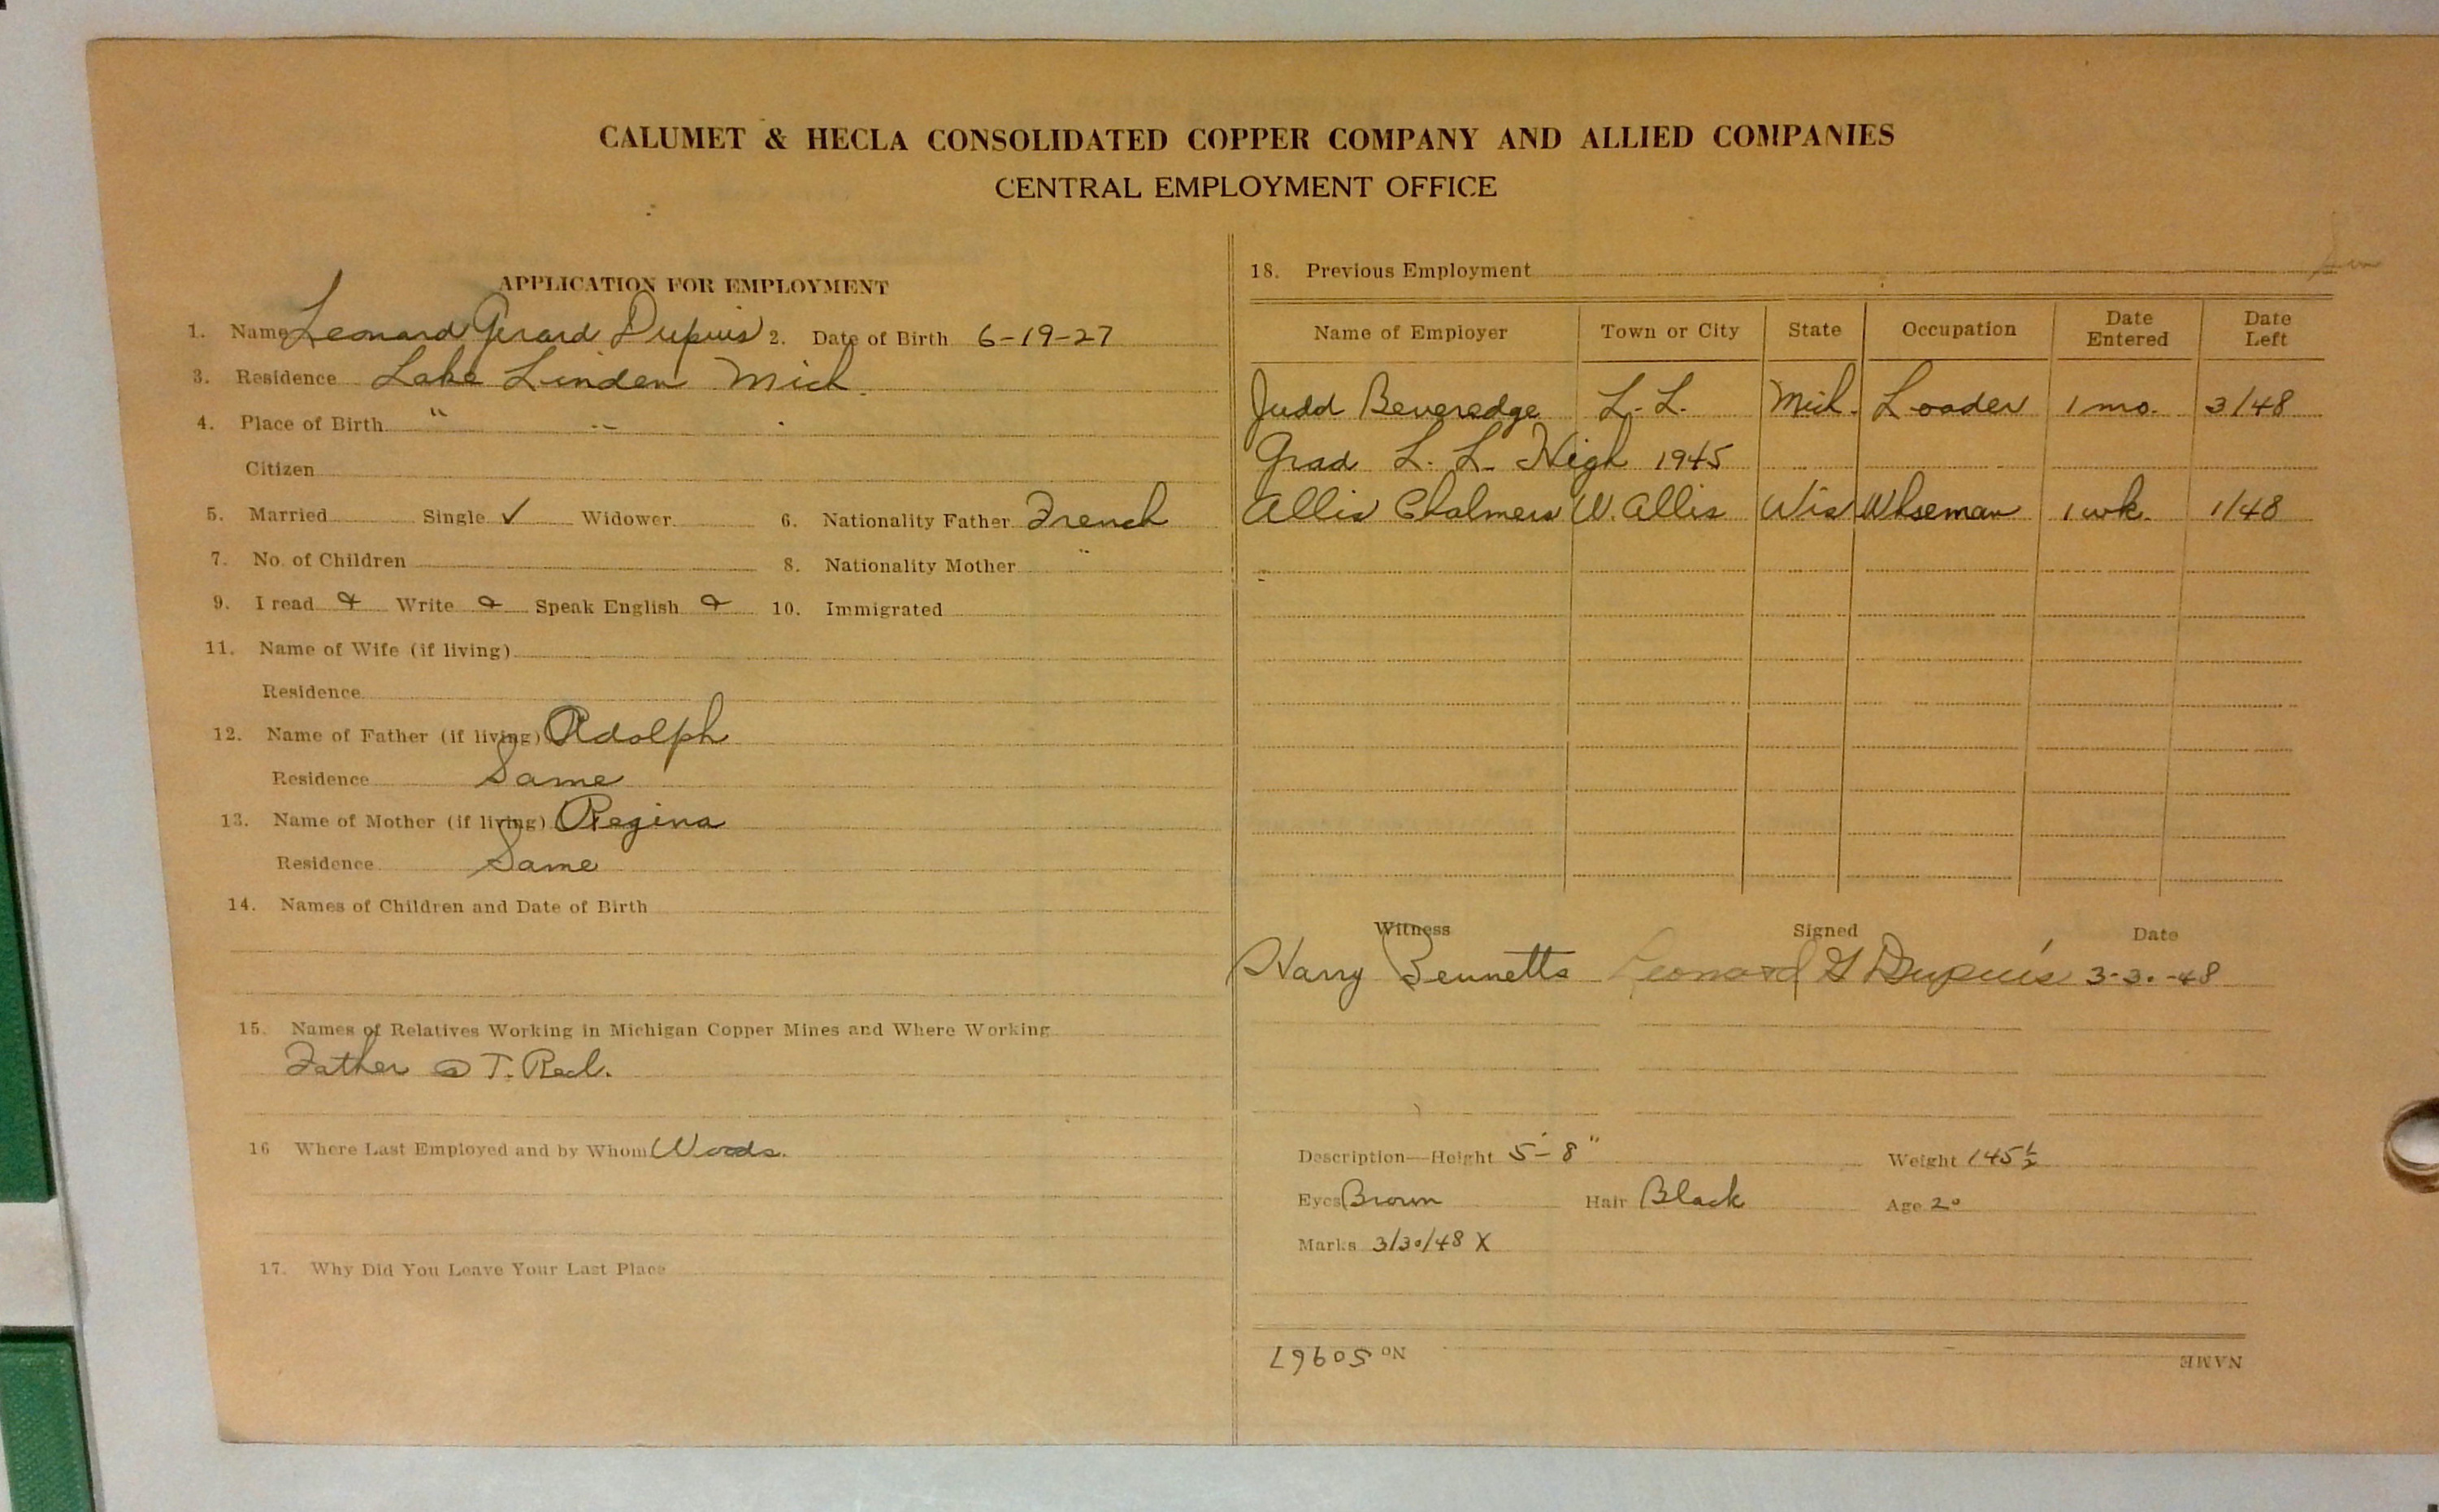 CALUMET & HECLA CONSOLIDATED COPPER COMPANY AND ALLIED COMPANIES
CENTRAL EMPLOYMENT OFFICE
APPLICATION FOR EMPLOYMENT
1. Name Leonard Gerard Dupuis 2. Date of Birth 6-19-27
3. Residence Lake Linden Mich.
4. Place of Birth " "
Citizen
5. Married Single ✓ Widower 6. Nationality Father French
7. No. of Children 8. Nationality Mother "
9. I read & Write & Speak English & 10. Immigrated
11. Name of Wife (if living)
Residence
12. Name of Father (if living) Adolph
Residence Same
13. Name of Mother (if living) Regina
Residence Same
14. Names of Children and Date of Birth
15. Names of Relatives Working in Michigan Copper Mines and Where Working
Father @ T. Recl.
16 Where Last Employed and by Whom Woods.
17. Why Did You Leave Your Last Place
18. Previous Employment
Name of Employer Town or City State Occupation Date Entered Date Left
Judd Beveredge L. L. Mich. Loader 1 mo. 3/48
Grad L. L. High 1945
Allis Chalmers W. Allis Wis Whseman 1 wk. 1/48
Witness Signed Date
Harry Bennetts Leonard G Dupuis 3-30-48
Description—Height 5'-8" Weight 145½
Eyes Brown Hair Black Age 20
Marks 3/30/48 X
NAME No 50967